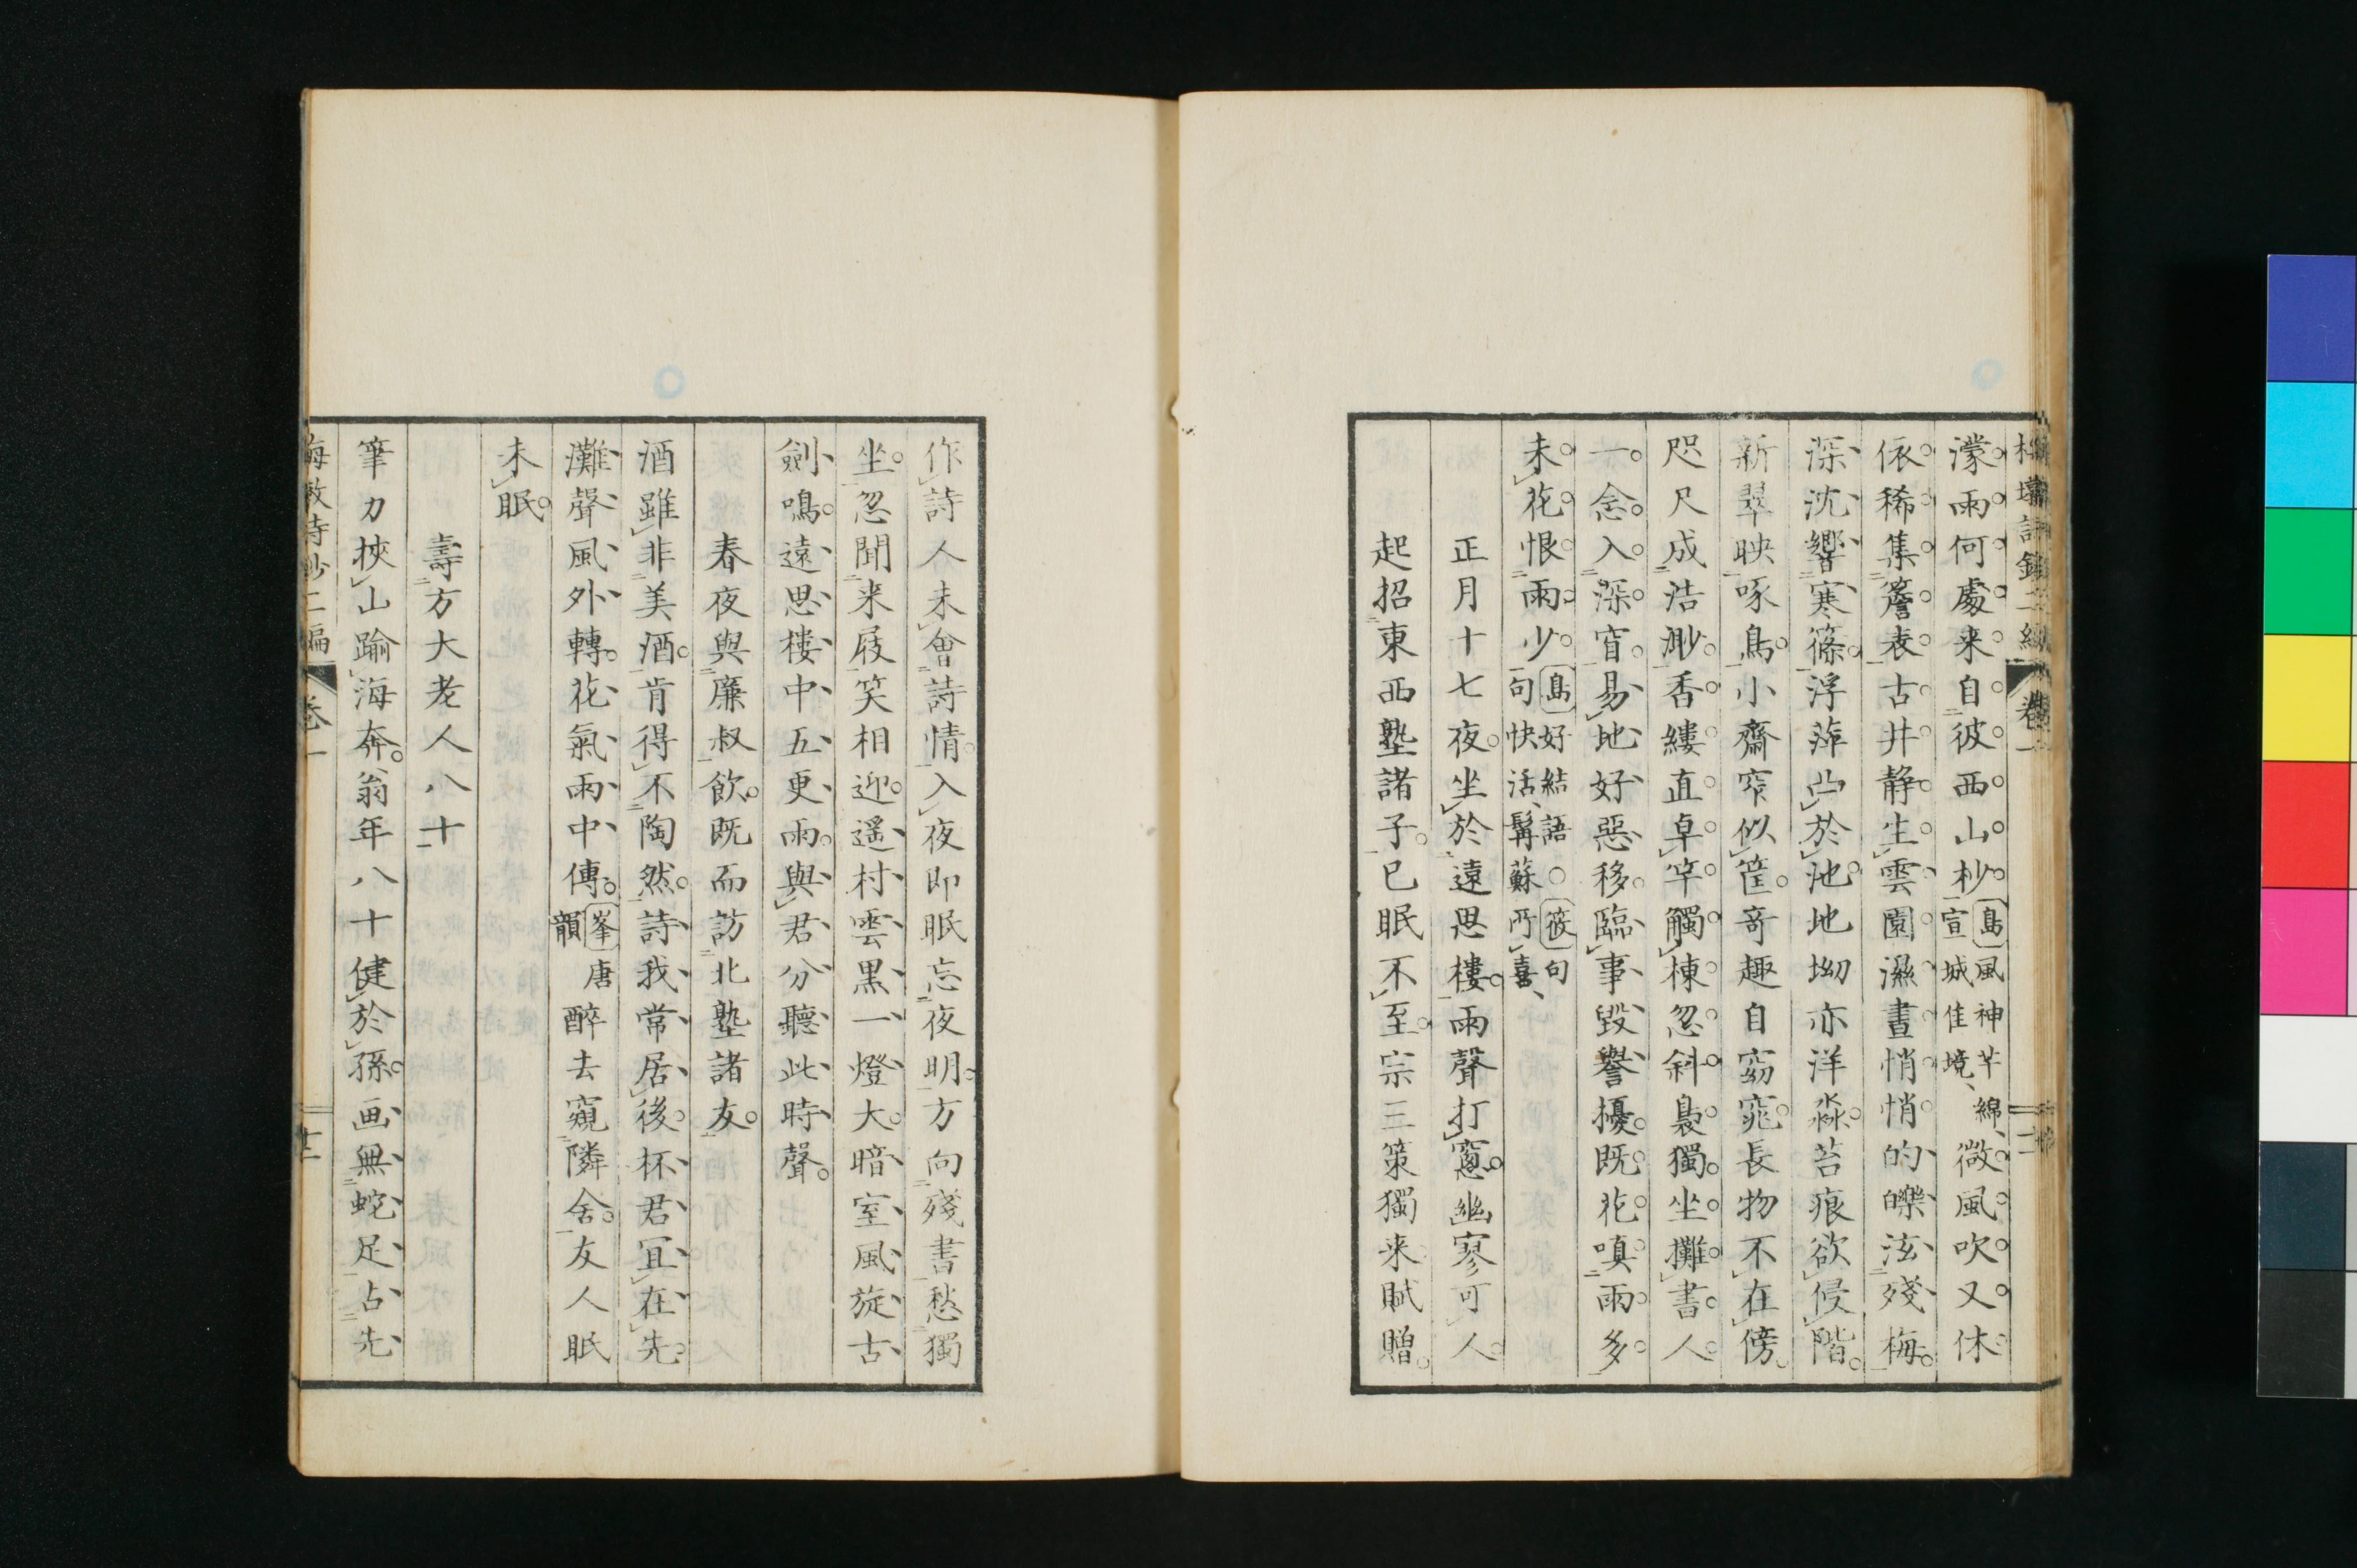 濛雨何處来自彼西山杪島風神芊綿宣城佳境微風吹又休
依稀集簷表古井静生雲園濕晝悄悄的皪泫殘梅
深沈響寒篠浮萍凸於池地坳亦洋淼苔痕欲侵階
新翠映啄鳥小齋窄似筐竒趣自窈窕長物不在傍
咫尺成浩渺香縷直卓竿觸棟忽斜裊獨坐攤書人
一念入深窅易地好惡移臨事毀譽擾既花嗔雨多
未花恨雨少島好結語○筱句句快活髯蘇所喜
正月十七夜坐於遠思樓雨聲打窻幽寥可人
起招東西塾諸子已眠不至宗三策獨来賦贈
作詩人未會詩情入夜即眠忘夜明方向殘書愁獨
坐忽聞来屐笑相迎遥村雲黒一燈大暗室風旋古
劍鳴遠思樓中五更雨與君分聽此時聲
春夜與廉叔飲既而訪北塾諸友
酒雖非美酒肯得不陶然詩我常居後杯君冝在先
灘聲風外轉花氣雨中傳峯唐韻醉去窺隣舎友人眠
未眠
壽方大老人八十
筆力挾山踰海奔翁年八十健於孫画無蛇足占先
卷一